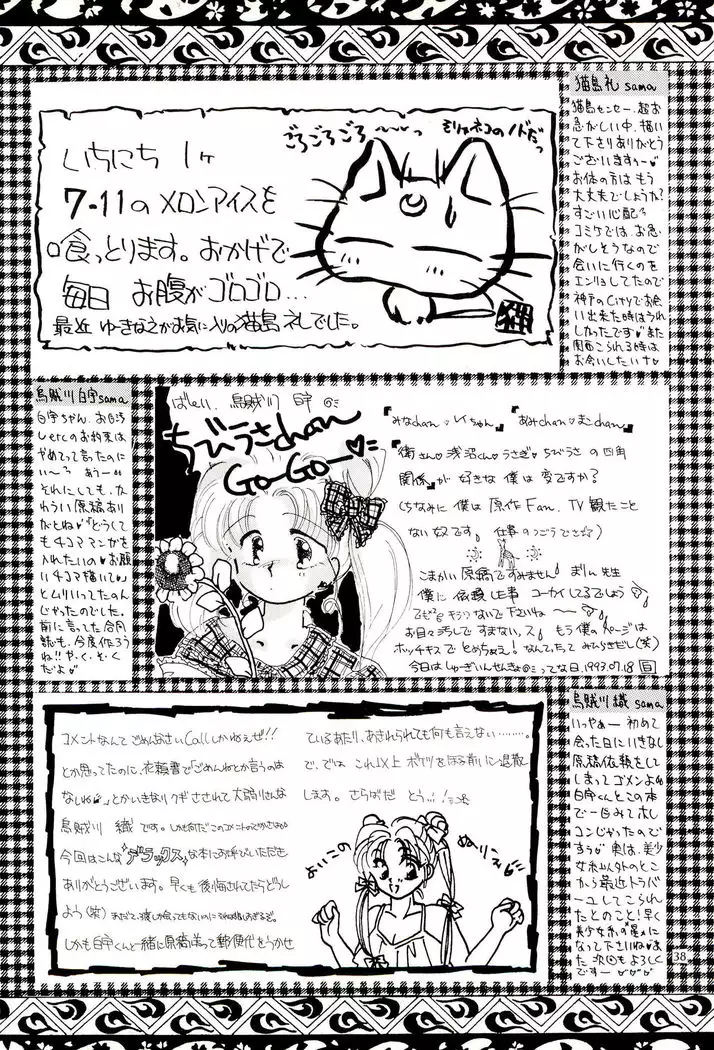 ごろごろごろ〜〜っ
いちにち 1ヶ
7-11の メロンアイスを
喰っとります。おかげで
毎日 お腹がゴロゴロ...
最近 ゆーきなえがお気に入りの猫島礼でした。
猫
猫島礼 sama
猫島センセー、超お
急がしい中、描い
て下さりありがとう
ございますぅー♥
お体の方はもう
大丈夫でしょうか?
すごい心配
コミケでは、お急
がしそうなので
会いに行くのを
エンリョしてたので
神戸のCityでお会
い出来た時はうれ
しかったです♥また
関西こられる時は
お会いしたいナ♥
烏賊川 白宇 sama
白宇ちゃん、お目汚
しetcのお約束は
やめてって言ったのに
い〜ろ あうー
それにしても、かわ
わうい 原稿あり
がとね♥「どうして
も4コママンガを
入れたいの♥お願
い4コマ描いて♥」
とムリいってたの
んじゃったのでした。
前に言ってた合同
誌も、今度作ろう
ね!! ぞくぞく
だよ
ばーい、烏賊川 白宇
ちびうさchan
GO-GO-♥
『みなchan♥レイちゃん』『あみchan♥まこchan』
『衛さん♥浅沼くん♥うさぎ♥ちびうさ の四角
関係』が 好きな 僕は 変ですか?
(ちなみに 僕は 原作Fan、TV観たこと
ない 奴です。仕事のつごうでさ☆)
こまかい 原稿ですみません♪ まりん先生
僕に 依頼した事 コーカイしてるでしょう
でもキラワないで下さいね〜
お目々汚しで すまないっス。もう僕のページは
ホッチキスで とめちゃえ! なんたって みびらきだし(笑)
今日は しゅーぎいんせんきょ ってな日、1993.07.18 白
烏賊川 織 sama
いっやぁー 初めて
会った日にいきなし
原稿依頼をして
しまって ゴメンよね
白宇くんとこの本
で一回みてホレ
コンじゃったので
すぅ♥ 実は、美少
女系以外のとこ
から最近トラバ
ーユしてこられ
たとのこと! 早く
美少女系の“星”に
なって下さいね♥ま
た 次回もよろしく
ですー♥♥♥
コメントなんてごめんなさいCallしかねぇぜ!!
とか思ってたのに、依頼書で「ごめんねとか言うのは
なしね♥」とかいきなりクギさされて大弱りさんな
烏賊川 織です。
今回はこんな“デラックス”な本にお呼びいただき
ありがとうございます。早くも後悔されてたらどうし
よう(笑)
しかも白宇くんと一緒に原稿送って郵便代をうかせ
ているあたり、あきれられても何も言えない………。
で、では これ以上 ボケツをほる前に退散
します。さらばだ とう…!
よいこの
ぬりえ♥
38